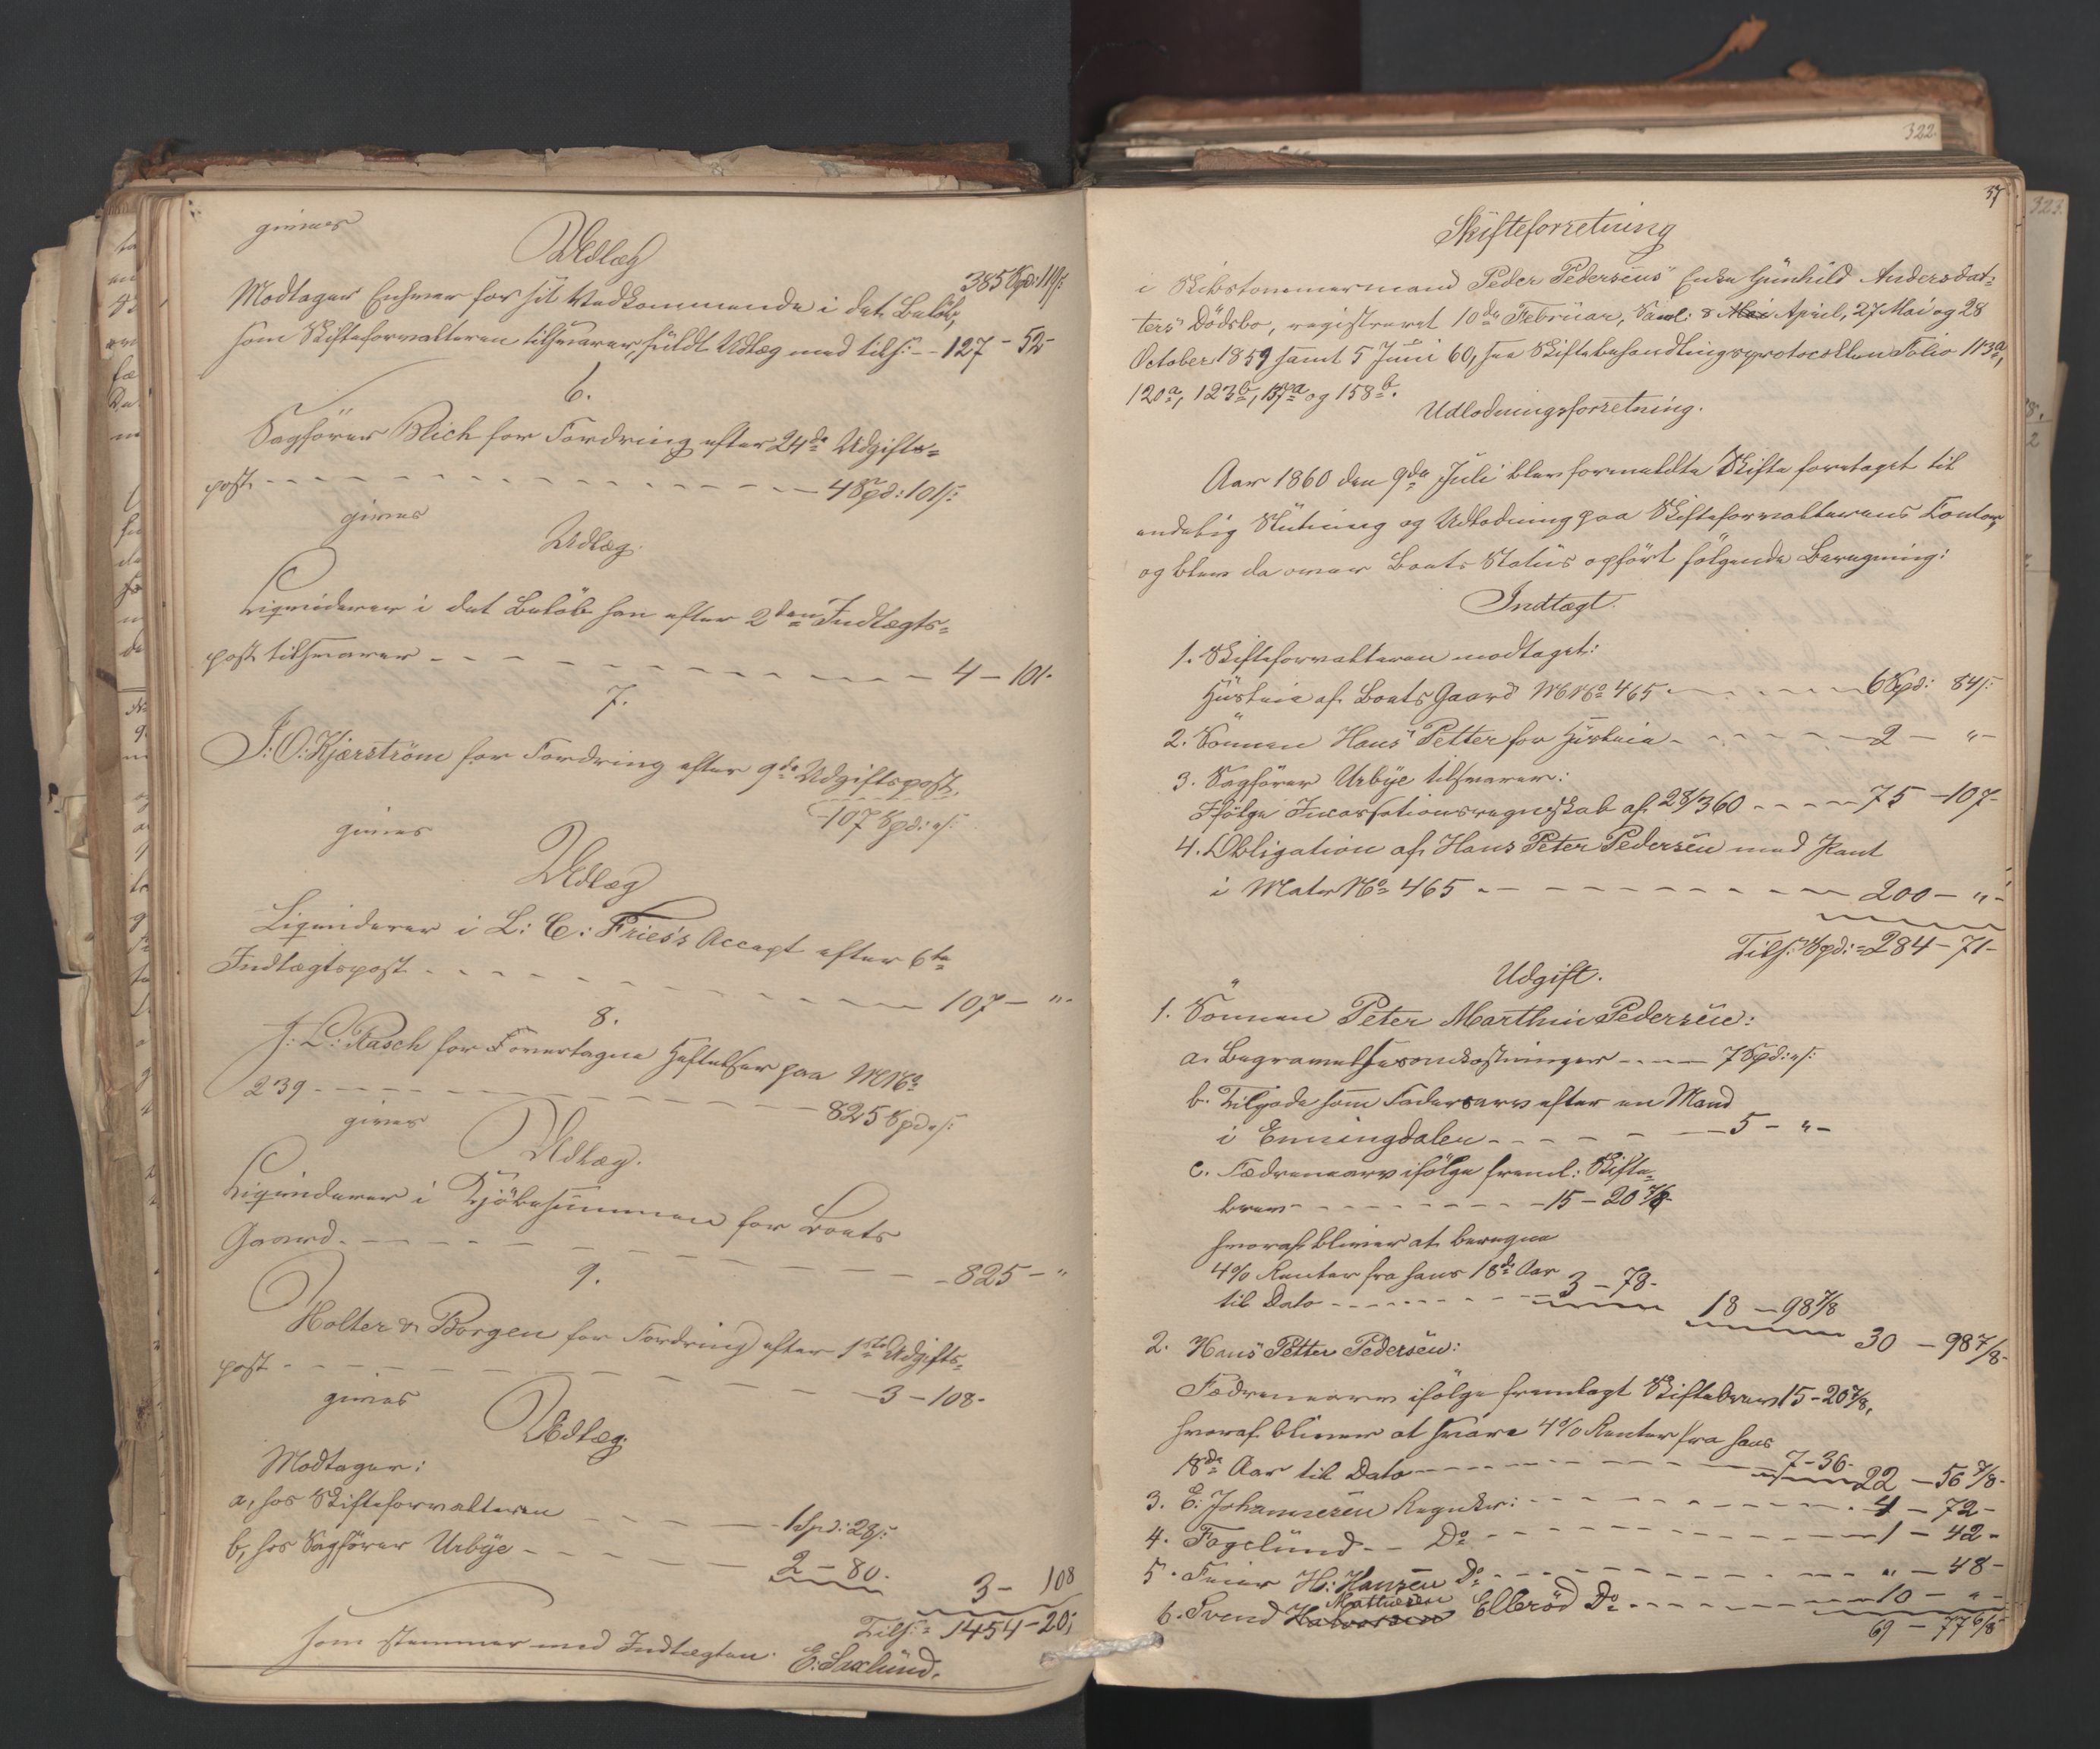 gives
Udlæg
385 Spd: 119 s:
Modtager Enhver for sit Vedkommende i det Beløb,
som Skifteforvalteren tilsvarer, fuldt Udlæg med tils: -- 127 - 52
6.
Sagfører Blich for Fordring efter 24de Udgifts=
post. - - - 4 Spd: 101 s:
gives
Udlæg.
Liqviderer i det Beløb han efter 2den Indtægts=
post tilsvarer - - - 4 - 101.
7.
J: O: Kjærström for Fordring efter 9de Udgiftspost.
107 Spd: " s:
gives
Udlæg
Liqviderer i L: C: Fries's Accept efter 6te
Indtægtspost - - - 107 - "-
8.
J: L: Rasch for overtagne Heftelser paa M No
239. - - - 825 Spd " s:
gives
Udlæg.
Liqviderer i Kjøbesummen for Boets
Gaard. - - - 825 - "
9.
Holter & Borgen for Fordring efter 1ste Udgifts=
post - - - 3 - 108-
gives
Udlæg.
Modtager:
a, hos Skifteforvalteren - - - 1 Spd: 28 s:
b, hos Sagfører Urbye - - - 2 - 80.
3 - 108
Tils: = 1454 - 20;
som stemmer med Indtægten.
E: Saxlund.
322.
323.
37
Skifteforretning
i Skibstømmermand Peder Pedersens Enke Gunhild Andersdat=
ters Dødsbo, registreret 10de Februar, Saml: 8 Mai April, 27 Mai og 28
October 1859 samt 5 Juni 60, see Skiftebehandlingsprotocollen Folio 113a,
120a, 123b, 137a og 158b.
Udlodningsforretning.
Aar 1860 den 9de Juli blev formeldte Skifte foretaget til
endelig Slutning og Udlodning paa Skifteforvalterens Contor,
og blev da over Boets Status opført følgende Beregning:
Indtægt.
1. Skifteforvalteren modtaget:
Husleie af Boets Gaard M No 465 - - - 6 Spd: 84 s:
2. Sønnen Hans Petter for Husleie - - - 2 - "-
3. Sagfører Urbye tilsvarer:
Ifølge Incassationsregnskab af 28/3 60 - - - 75 - 107-
4. Obligation af Hans Peter Pedersen med Pant
i Matr No 465 - - - 200 - "-
Tils: Spd: = 284 - 71-
Udgift.
1. Sønnen Peter Marthin Pedersen:
a. Begravelsesomkostninger - - - 7 Spd: " s:
b. Tilgode som Fadersarv efter en Mand
i Enningdalen - - - 5 - "-
c. Fædrenearv ifølge freml: Skifte=
brev - - - 15 - 20 7/8
hvoraf bliver at beregne
4% Renter fra hans 18de Aar
til Dato - - - 3 - 78-
18 - 98 7/8
30 - 98 7/8-
2. Hans Petter Pedersen:
Fædrenearv ifølge fremlagt Skiftebrev 15 - 20 7/8,
hvoraf bliver at svare 4% Renter fra hans
18de Aar til Dato - - - 7 - 36-
22 - 56 7/8-
3. E: Johannesen Regnskr: - - - 4 - 72-
4. Fagelund -- Do - - - 1 - 42-
5. Feier H: Hansen Do - - - " - 48-
6. Svend Halvorsen Mathiesen Ellerød Do - - - 10 - "-
69 - 77 6/8